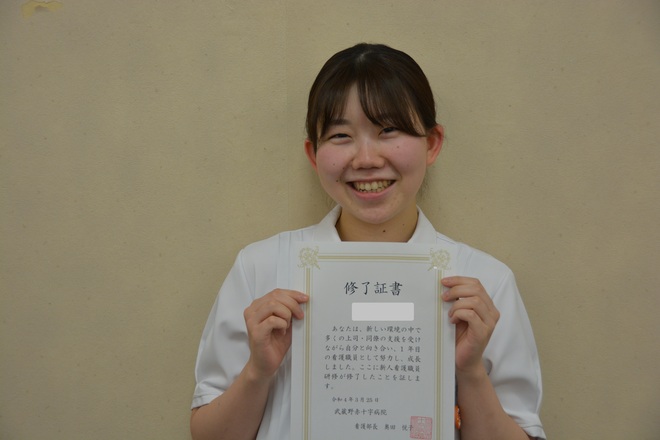 修了証書
あなたは、新しい環境の中で
多くの上司・同僚の支援を受け
ながら自分と向き合い、1年目
の看護職員として努力し、成長
しました。ここに新人看護職員
研修が修了したことを証しま
す。
令和4年3月25日
武蔵野赤十字病院
看護部長 奥田 悦子